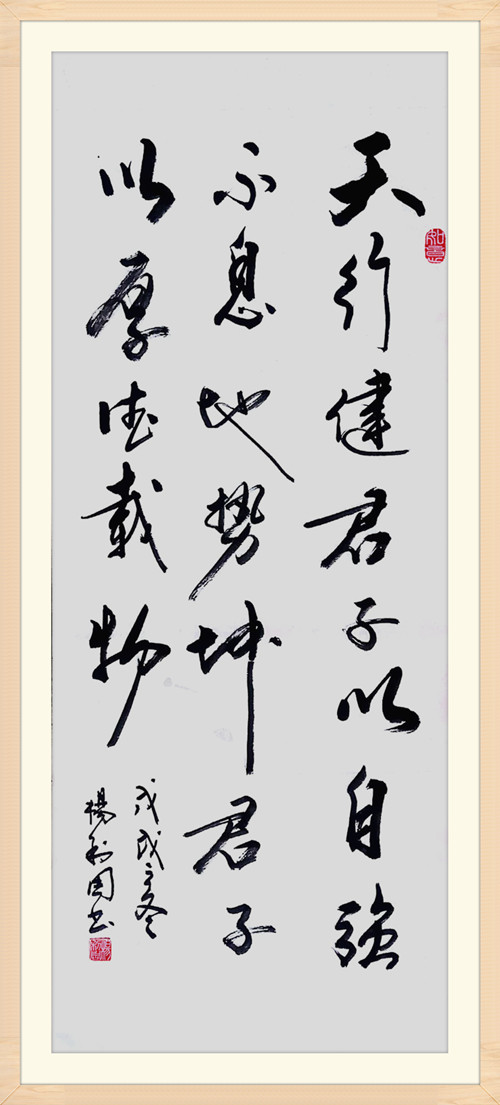 天行健君子以自強
不息地势坤君子
以厚德載物
戊戌之冬
楊利国书